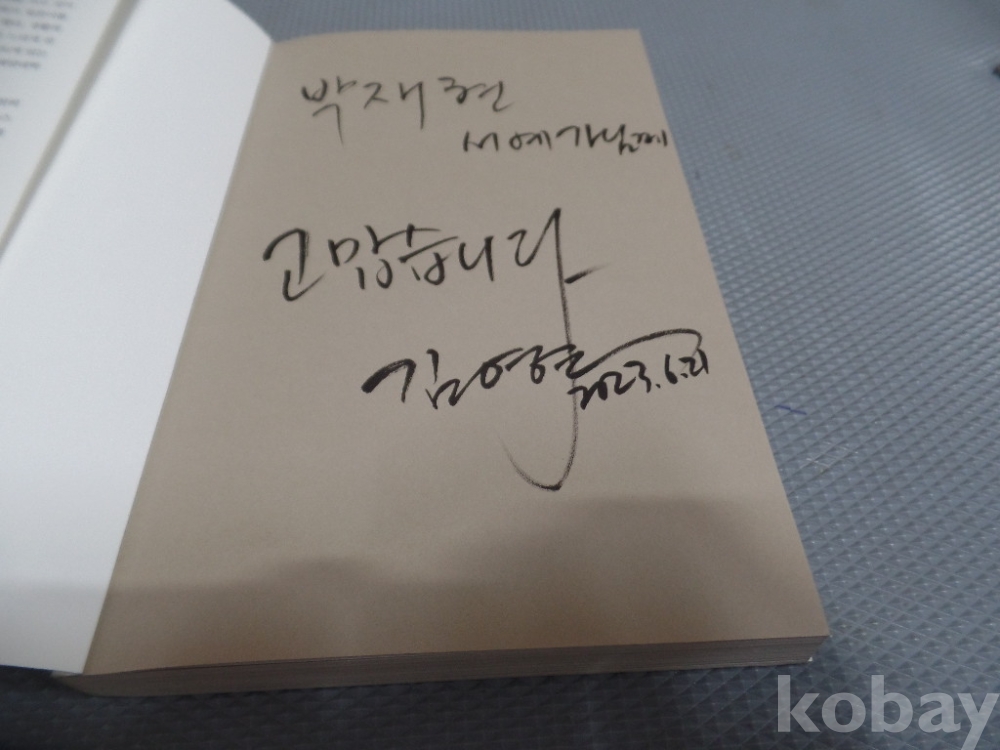 박재현
서예가님께
고맙습니다
김영
2023. 6. 21
kobay